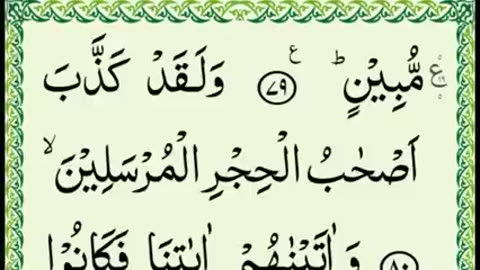 مُّبِيۡنٍ ؕ ﴿۷۹﴾ ع وَلَـقَدۡ كَذَّبَ
اَصۡحٰبُ الۡحِجۡرِ الۡمُرۡسَلِيۡنَ ۙ
﴿۸۰﴾ وَاٰتَيۡنٰهُمۡ اٰيٰتِنَا فَكَانُوۡا